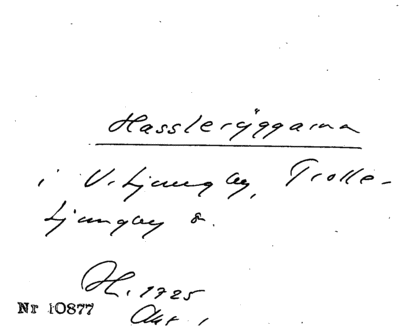 Hassleryggarna
i V. Ljungby, Trolle-
Ljungby s.
H. 1725
Akt 1
Nr 10877